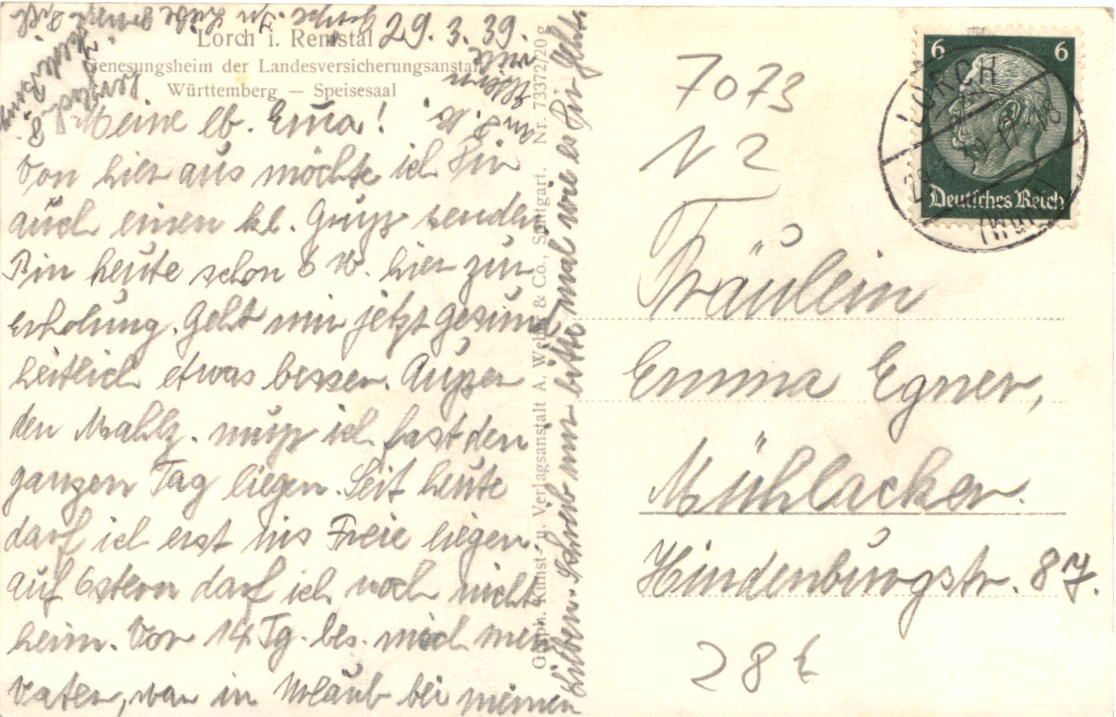 29. 3. 39.
Lorch i. Remstal
Genesungsheim der Landesversicherungsanstalt
Württemberg — Speisesaal
Meine lb. Emma!
Von hier aus möchte ich Dir
auch einen kl. Gruß senden
Bin heute schon 6 W. hier zur
Erholung. Geht mir jetzt gesund
heitlich etwas besser. Außer
den Mahlz. muß ich fast den
ganzen Tag liegen. Seit heute
darf ich erst ins Freie liegen.
auf Ostern darf ich noch nicht
heim. Vor 14 Tg. bes. mich mein
Vater, war in Urlaub bei meinen
Lieben. Schreib mir bitte mal wie es Dir geht.
Graph. Kunst- u. Verlagsanstalt A. Weber & Co., Stuttgart. Nr. 73372/20g
7073
N 2
Fräulein
Emma Egner,
Mühlacker.
Hindenburgstr. 87.
28 €
6 6
Deutsches Reich
LORCH